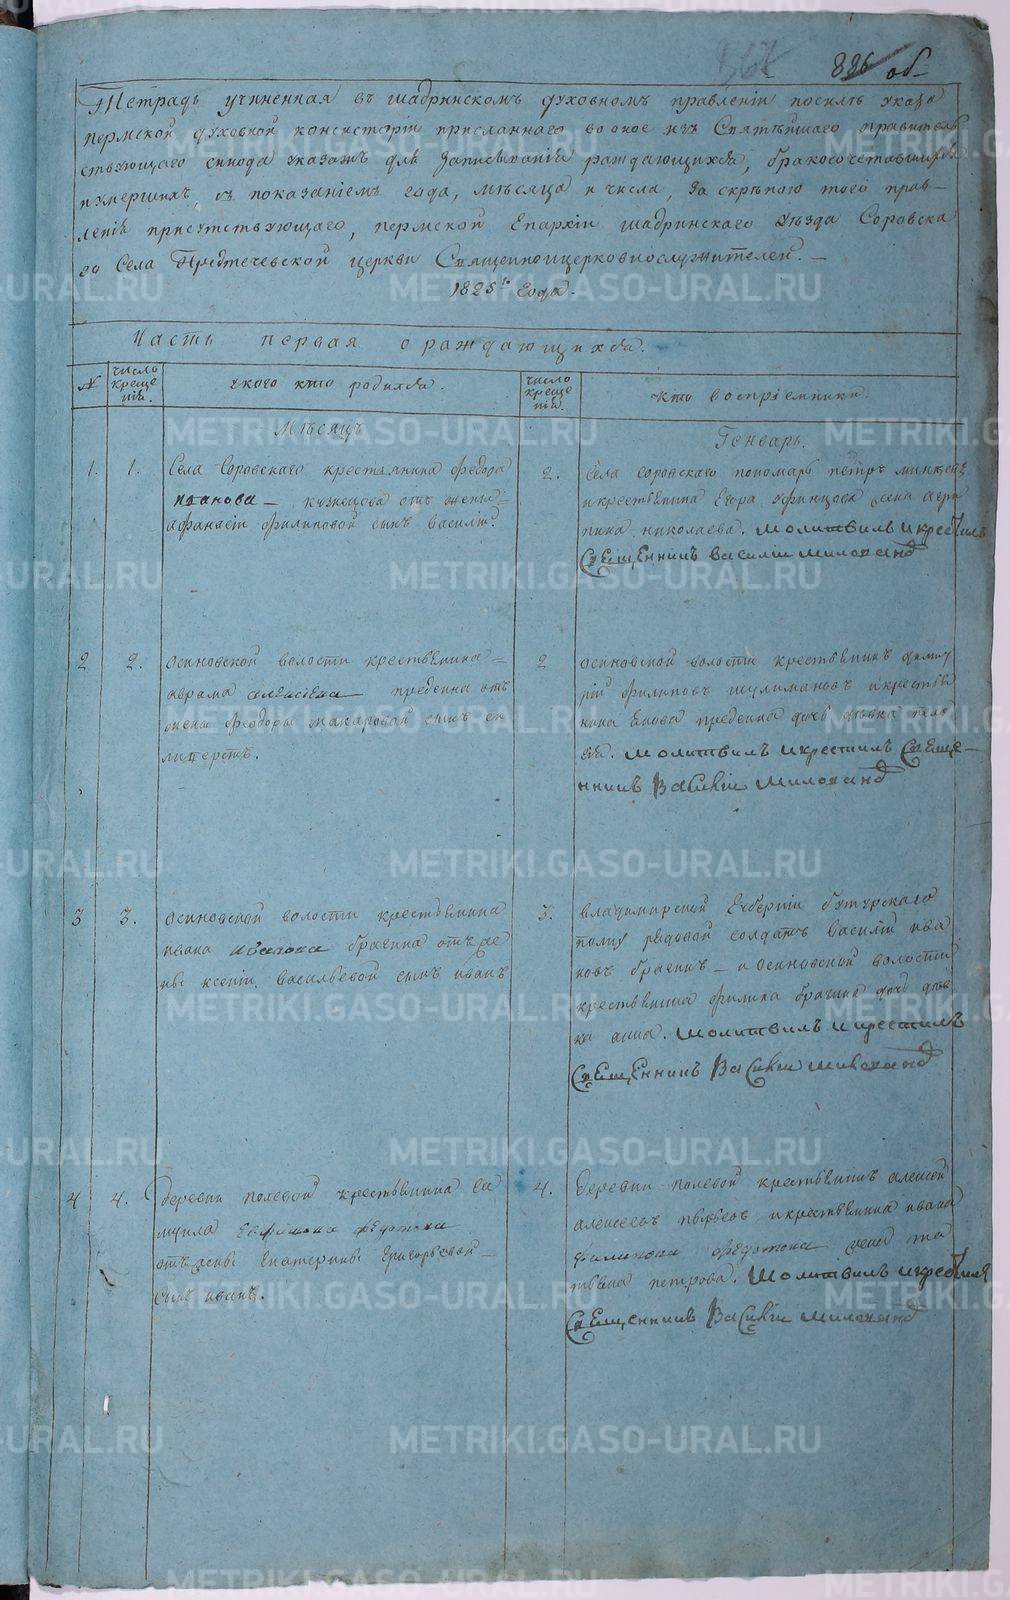 867 886 об
Тетрадь учиненная въ шадринскомъ духовномъ правленіи посилѣ указа
пермской духовной консисторіи присланнаго во оное изъ Святѣйшаго правитель
ствующаго синода указамъ для записыванія раждающихся, бракосочетавшихся
и умершихъ, съ показаніемъ года, мѣсяца и числа, за скрѣпою того прав-
ленія присутствующаго, пермской Епархіи шадринскаго уѣзда Соровска
го Села Предтечевской церкви Священноицерковнослужителей. —
1825го Года.
Часть первая о раждающихся.
№
число креще нія.
укого кто родился.
число креще нія.
кто воспріемники.
Мѣсяцъ
Генварь.
1. 1.
Села Соровскаго крестьянина Федора
иванова — кузнецова отъ жены —
афанасіи филиповой сынъ василій.
2.
Села соровскаго пономарь петръ
и крестьянина Егора жена агри
пина николаева. молитвилъ и крестилъ
Священникъ василій милованов
2 2.
осиновской волости крестьянина —
аврама алексѣева отъ
жены феодоры макаровой сынъ се
ливерстъ.
2
осиновской волости крестьянинъ дмит
рій филиповъ шулимановъ и крестья
нина дочь дѣвка пела
гія. молитвилъ и крестилъ Священ —
никъ Василій Милованов
3 3.
осиновской волости крестьянина
ивана иванова брагина отъ же
ны ксеніи васильевой сынъ иванъ
3.
владимирской Губерніи бутурскаго
полку рядовой солдатъ василій ива
новъ брагинъ — и осиновской волости
крестьянина филипа брагина дочь дѣв
ка анна. молитвилъ и крестилъ
Священникъ Василій милованов
4 4.
деревни полевой крестьянина са
муила Ефимова федотова
отъ жены Екатерины Григорьевой —
сынъ иванъ.
4.
деревни полевой крестьянинъ алексей
алексеевъ и крестьянина ивана
филипова федотова жена та
тьяна петрова. молитвилъ и крестилъ
Священникъ Василій милованов
METRIKI.GASO-URAL.RU